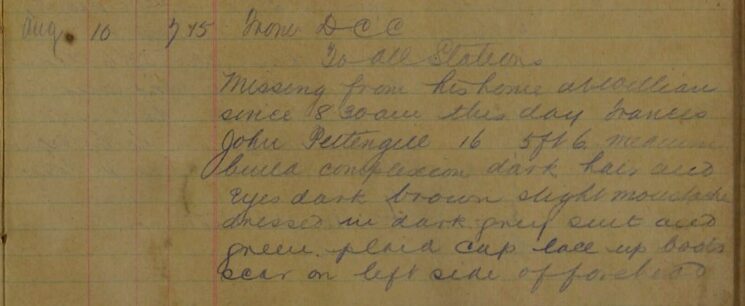 Aug. 10 7 45 From D C C
To all Stations
Missing from his home at Willian
since 8 30am this day Francis
John Pettengell 16 5ft 6 medium
build complexion dark hair and
Eyes dark brown slight moustache
dressed in dark grey suit and
green plaid cap lace up boots
scar on left side of forehead